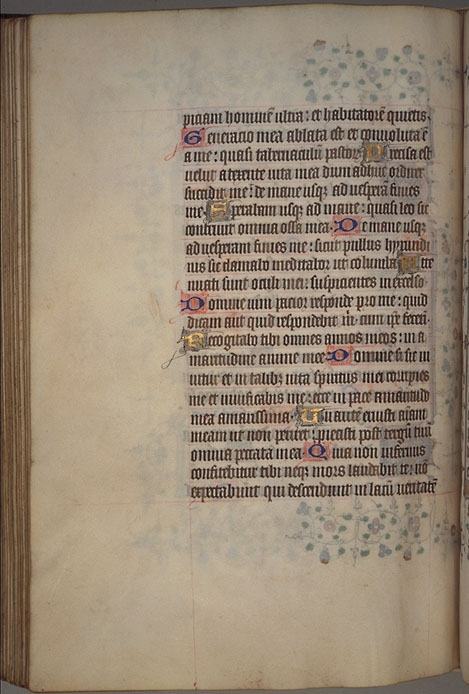 piciam hominē ultra: et habitatorē quietis.
Generacio mea ablata est et conuoluta ē
a me: quasi tabernaculū pastorū Precisa est
velut a texente uita mea dum adhuc ordirer
succidit me: de mane usqȝ ad vesperā finies
me Sperabam usqȝ ad mane: quasi leo sic
contriuit omnia ossa mea. De mane usqȝ
ad vesperam finies me: sicut pullus hyrundi
nis sic clamabo meditabor ut columba Atte
nuati sunt oculi mei: suspicientes in excelso
Domine vim pacior responde pro me: quid
dicam aut quid respondebit m̄. cum ip̄e fecerit.
Recogitabo tibi omnes annos meos: in a
maritudine anime mee Domine si sic ui
uitur et in talibȝ uita spiritus mei corripies
me et uiuificabis me: ecce in pace amaritudo
mea amarissima. Tu autē eruisti aīam
meam ut non periret: proiecisti post tergū tuū
omnia peccata mea Quia non infernus
confitebitur tibi neqȝ mors laudabit te: nō
expectabunt qui descendunt in lacū ueritatē